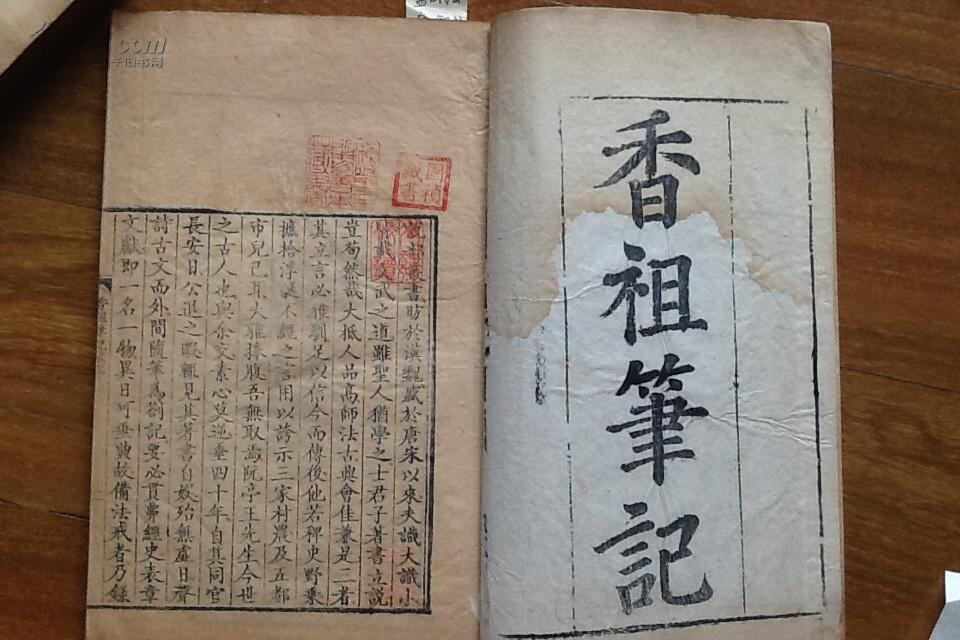 香祖筆記
說部叢書昉於漢魏盛於唐宋以來夫識大識小
皆載文武之道雖聖人猶學之士君子著書立說
豈苟然哉大抵人品高師法古興會佳兼是三者
其立言必雅馴足以信今而傳後他若稗史野乘
摭拾浮議不經之言用以誇示三家村農及五都
市兒已耳大雅捧腹吾無取焉阮亭王先生今世
之古人也與余交素心莫逆垂四十年自其同官
長安日公退之暇輒見其著書自娛殆無虛日齊
詩古文而外間隨筆為劄記要必貫串經史表章
文獻即一名一物異日可垂典故備法戒者乃錄
藏書
.com